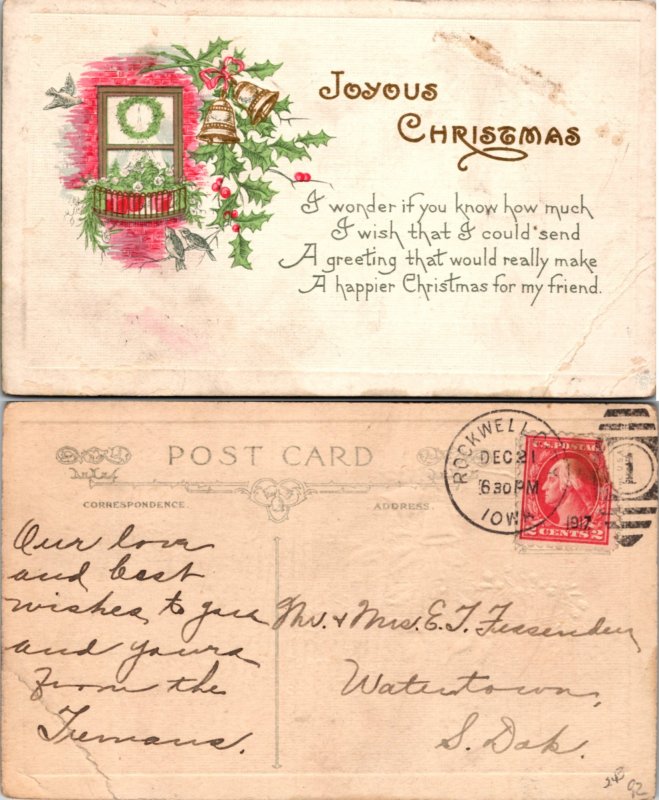 JOYOUS
CHRISTMAS
I wonder if you know how much
I wish that I could send
A greeting that would really make
A happier Christmas for my friend.
POST CARD
CORRESPONDENCE.
ADDRESS.
ROCKWELL
DEC 21
630 PM
1917
IOWA
U.S. POSTAGE
2 CENTS 2
1
Our love
and best
wishes to you
and yours
from the
Tremans.
Mr. & Mrs. E. T. Fessenden
Watertown,
S. Dak.